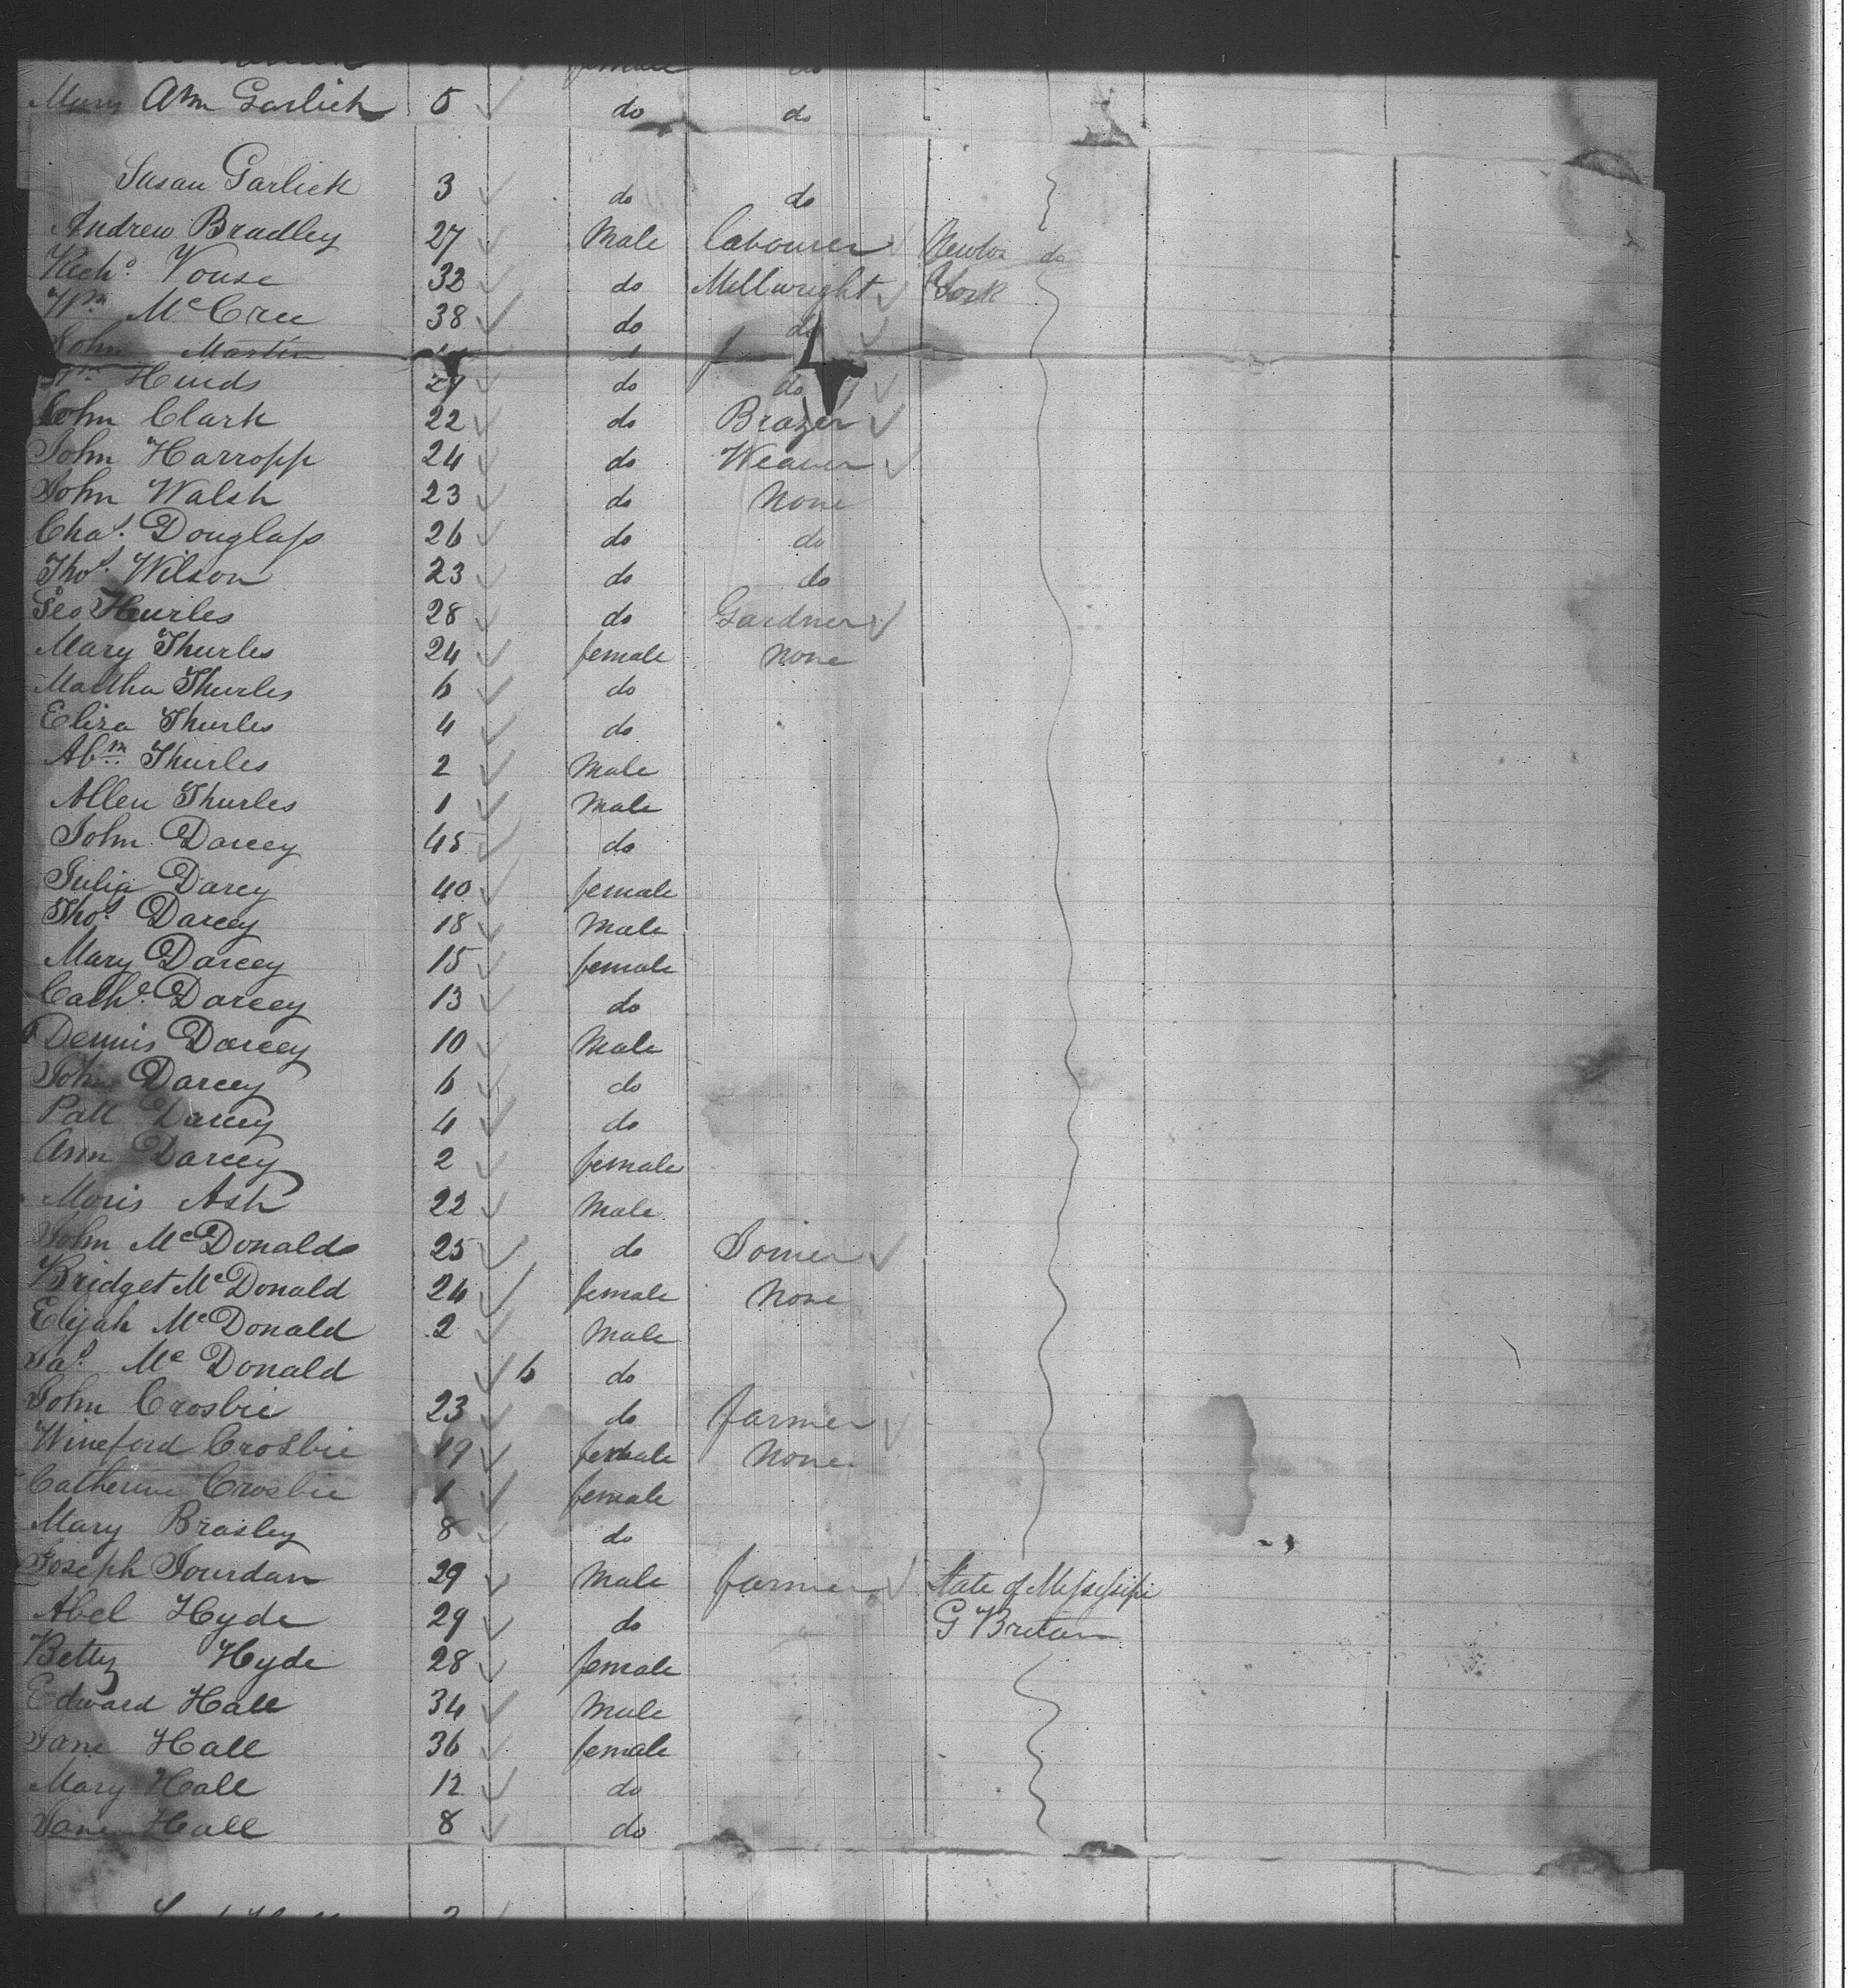 female do
Mary Ann Garlick 5 do do
Susan Garlick 3 do do
Andrew Bradley 27 Male labourer do
Richd. Vouse 32 do Millwright York
Wm McCree 38 do do
John Martin
Wm Hinds 27 do do
John Clark 22 do Brazer
John Harropp 24 do Weaver
John Walsh 23 do None
Chas. Douglass 26 do do
Thos. Wilson 23 do do
Geo Thurles 28 do Gardner
Mary Thurles 24 female none
Martha Thurles 6 do
Eliza Thurles 4 do
Abm. Thurles 2 Male
Allen Thurles 1 Male
John Darcey 45 do
Julia Darcy 40 female
Thos. Darcey 18 Male
Mary Darcey 15 female
Cathe. Darcey 13 do
Dennis Darcey 10 Male
John Darcey 6 do
Patt Darcey 4 do
Ann Darcey 2 female
Moris Ash 22 Male
John McDonald 25 do Joiner
Bridget McDonald 24 female None
Elijah McDonald 2 Male
Jas. McDonald 6 do
John Crosbie 23 do farmer
Wineford Crosbie 19 female None
Catherine Crosbie 1 female
Mary Brasley 8 do
Joseph Jourdan 29 Male farmer State of Messessipi
Abel Hyde 29 do G Britain
Betty Hyde 28 female
Edward Hall 34 Male
Jane Hall 36 female
Mary Hall 12 do
Jane Hall 8 do